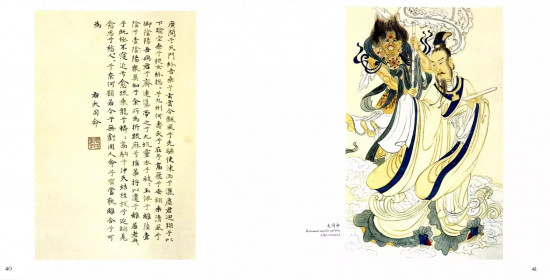 廣開兮天門紛吾乘兮玄雲令飄風兮先驅使涷雨兮灑塵君迴翔兮以
下踰空桑兮從女紛總總兮九州何壽夭兮在予高飛兮安翔乘清氣兮
御陰陽吾與君兮齋速導帝之兮九坑靈衣兮被被玉佩兮陸離壹
陰兮壹陽眾莫知兮余所為折疏麻兮瑤華將以遺兮離居老冉冉
兮既極不寖近兮愈疏乘龍兮轔轔高馳兮沖天結桂枝兮延佇羌
愈思兮愁人愁人兮奈何願若今兮無虧固人命兮有當孰離合兮可
為
右大司命
40
大司命
41